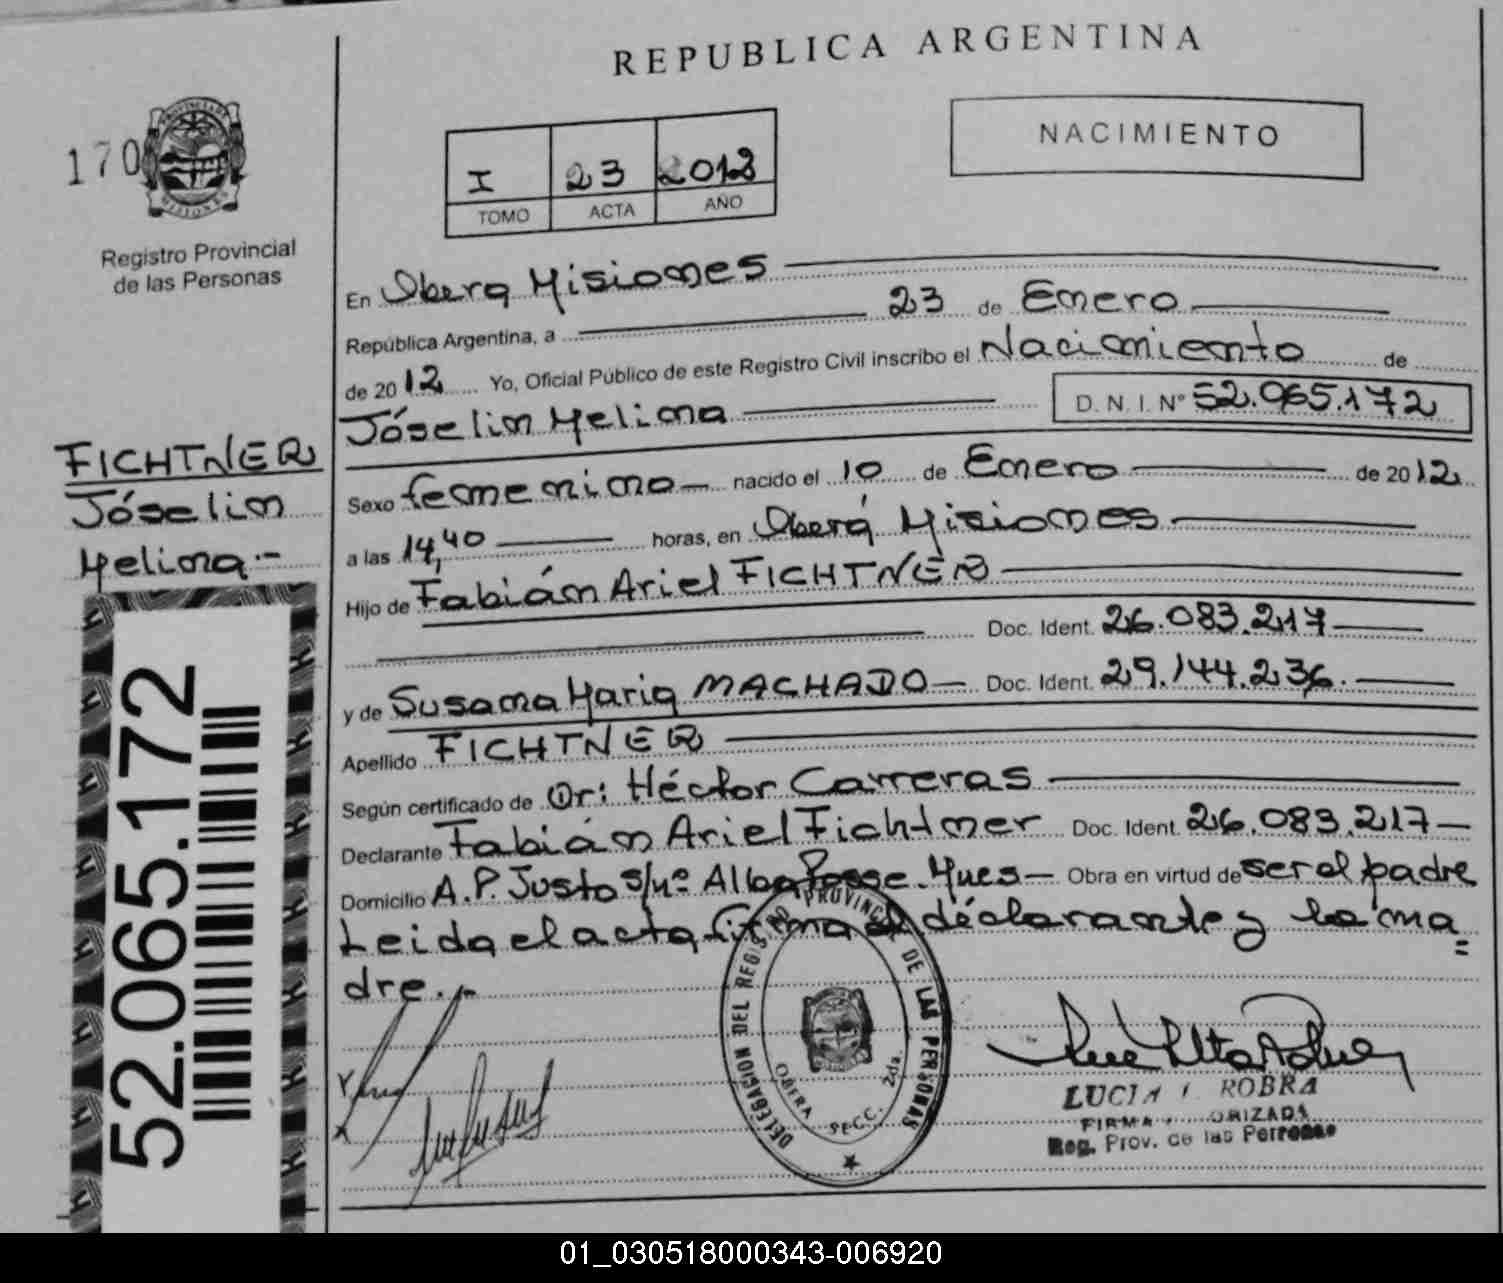 REPUBLICA ARGENTINA
NACIMIENTO
170
PROVINCIA DE
MISIONES
Registro Provincial
de las Personas
I 23 2012
TOMO ACTA AÑO
En Oberá Misiones
República Argentina, a 23 de Enero
de 2012 Yo, Oficial Público de este Registro Civil inscribo el Nacimiento de
Jóselin Melina D. N. I. Nº 52.065.172
FICHTNER
Jóselin
Melina.-
Sexo femenino nacido el 10 de Enero de 2012
a las 14,40 horas, en Oberá Misiones
Hijo de Fabián Ariel FICHTNER
Doc. Ident. 26.083.217
y de Susana Maria MACHADO Doc. Ident. 29.144.236.
Apellido FICHTNER
Según certificado de Dr: Héctor Carreras
Declarante Fabián Ariel Fichtner Doc. Ident. 26.083.217
Domicilio A.P. Justo s/nº Alba Posse. Mnes Obra en virtud de ser el padre
Leida el acta firma el declarante y la ma=
dre.-
52.065.172
DELEGACION DEL REGISTRO PROVINCIAL DE LAS PERSONAS
OBERA SECC. 2da.
LUCIA ROBRA
FIRMA
Reg. Prov. de las Personas
01_030518000343-006920